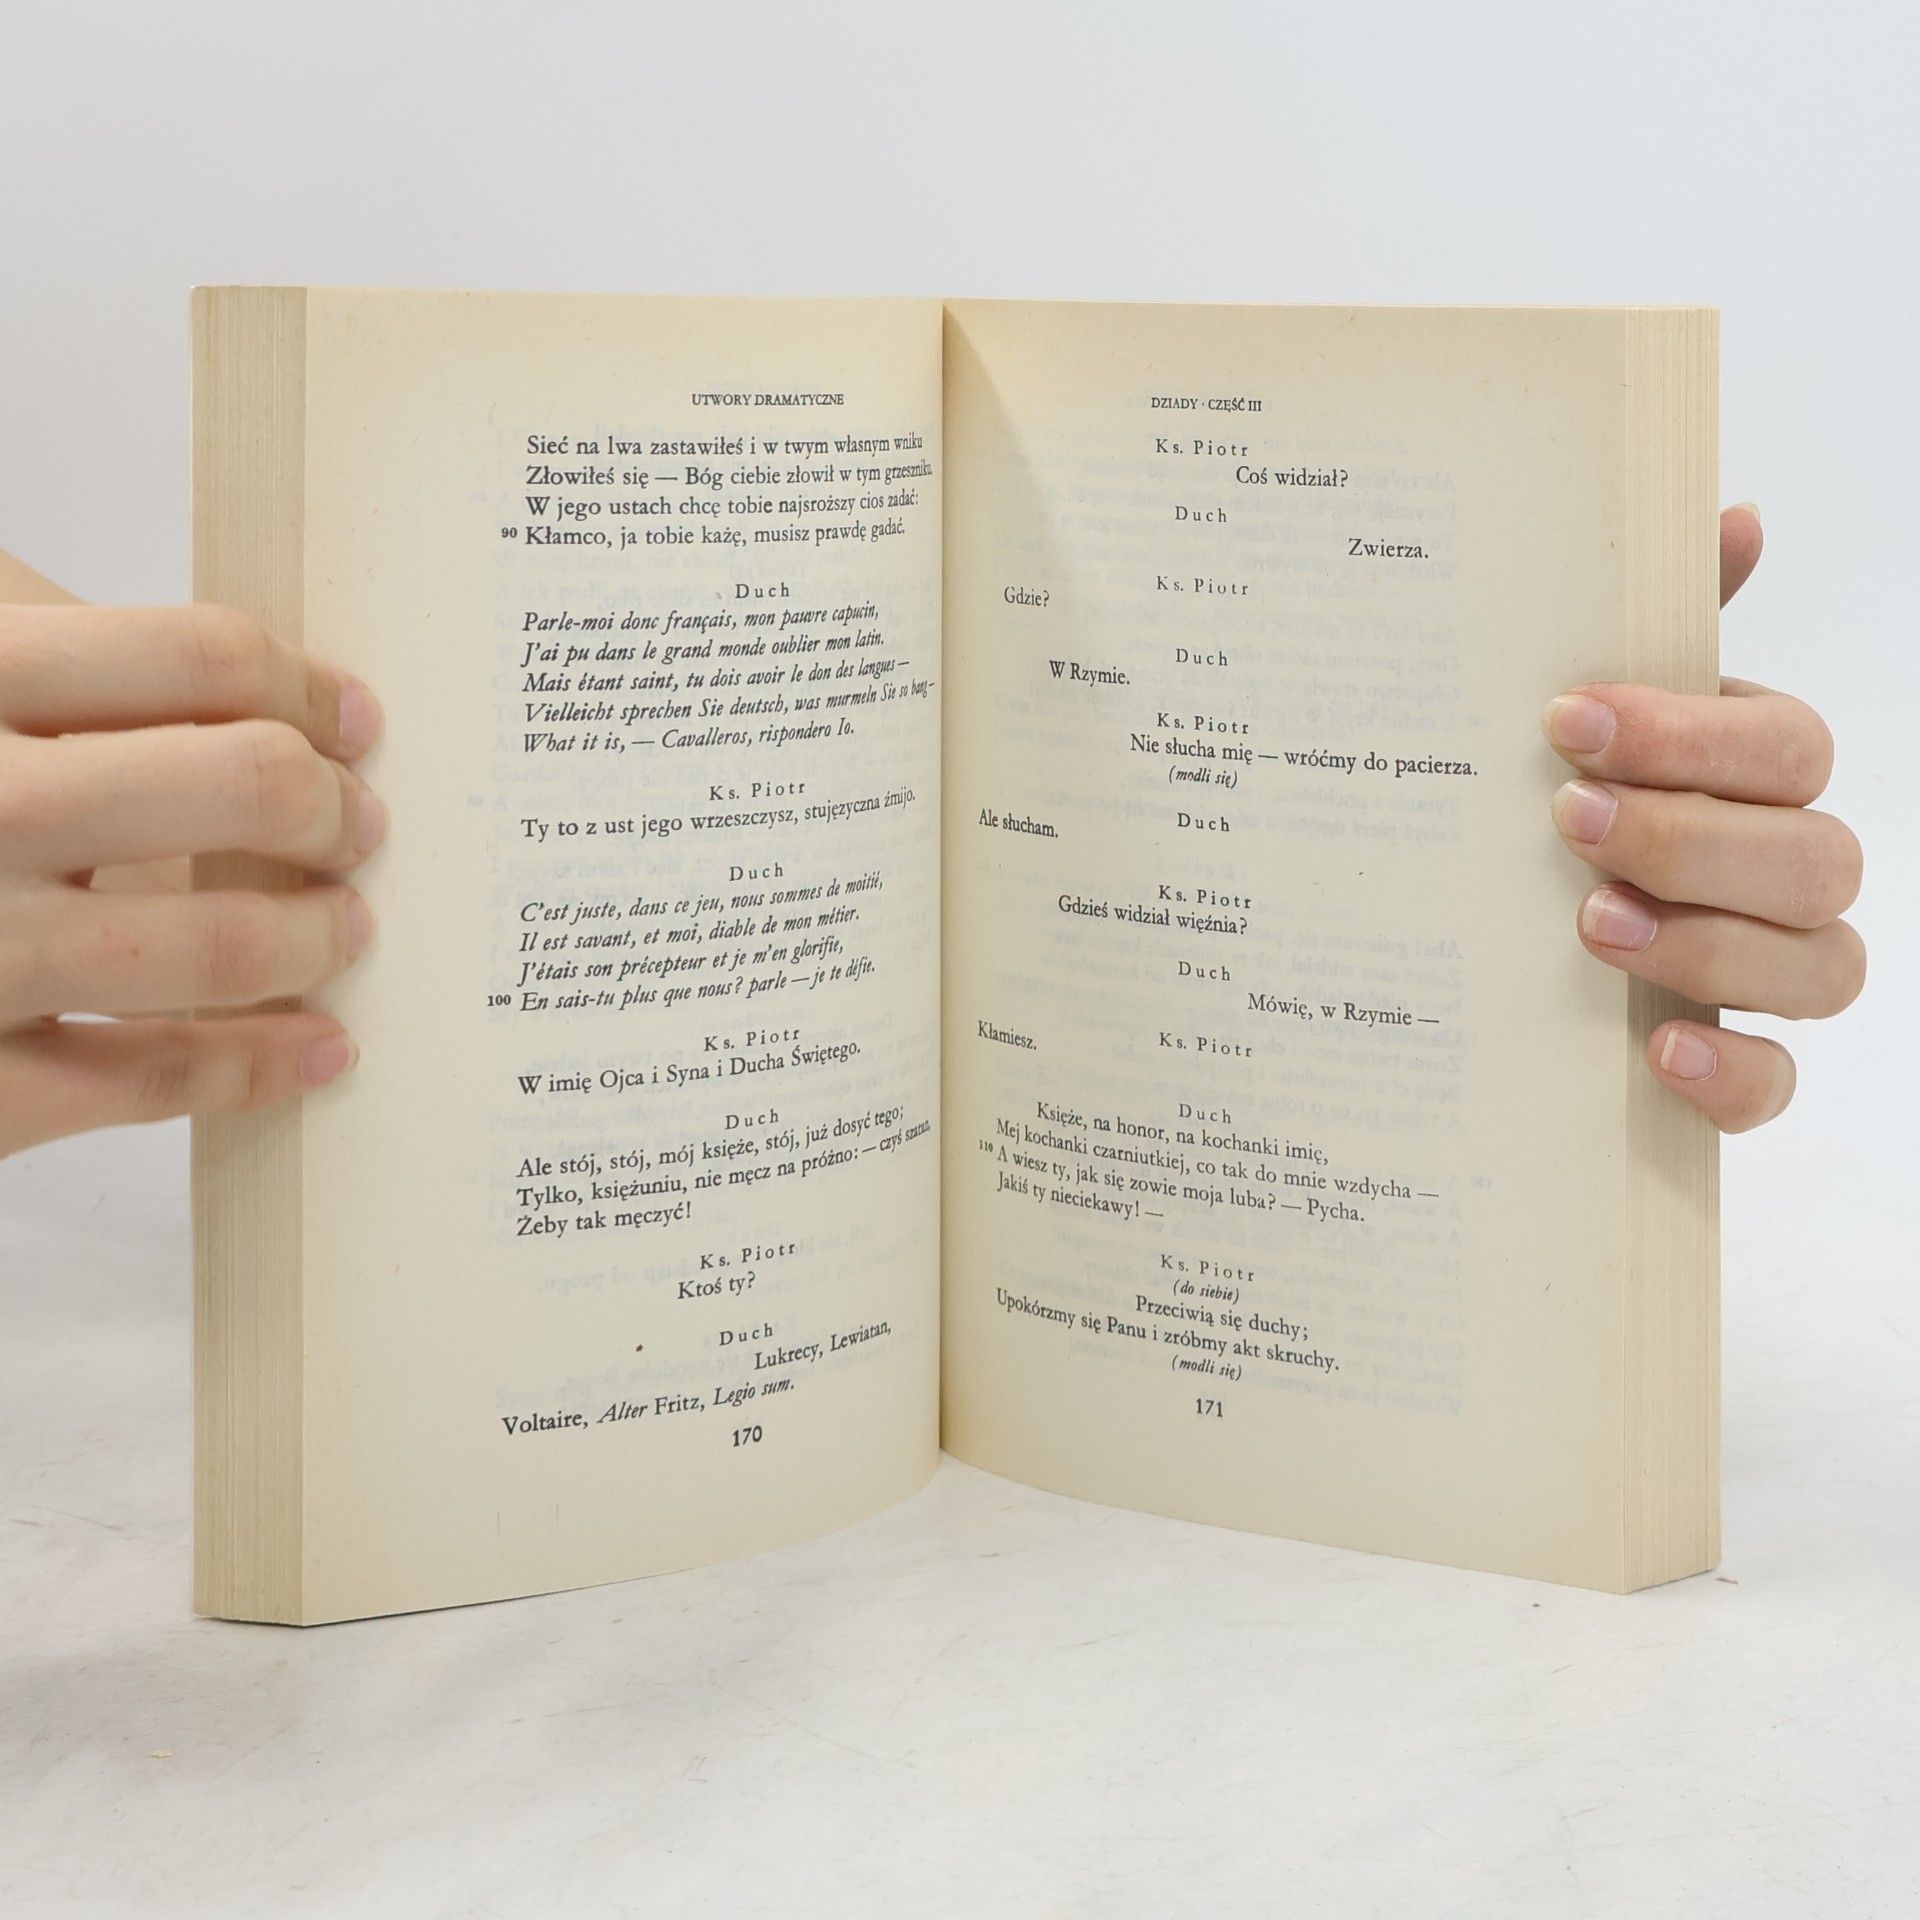 UTWORY DRAMATYCZNE
Sieć na lwa zastawiłeś i w twym własnym wniku
Złowiłeś się — Bóg ciebie złowił w tym grzeszniku.
W jego ustach chcę tobie najsroższy cios zadać:
90 Kłamco, ja tobie każę, musisz prawdę gadać.
Duch
Parle-moi donc français, mon pauvre capucin,
J'ai pu dans le grand monde oublier mon latin.
Mais étant saint, tu dois avoir le don des langues —
Vielleicht sprechen Sie deutsch, was murmeln Sie so bang —
What it is, — Cavalleros, rispondero Io.
Ks. Piotr
Ty to z ust jego wrzeszczysz, stujęzyczna żmijo.
Duch
C'est juste, dans ce jeu, nous sommes de moitié,
Il est savant, et moi, diable de mon métier.
J'étais son précepteur et je m'en glorifie,
100 En sais-tu plus que nous? parle — je te défie.
Ks. Piotr
W imię Ojca i Syna i Ducha Świętego.
Duch
Ale stój, stój, mój księże, stój, już dosyć tego;
Tylko, księżuniu, nie męcz na próżno: — czyś szatan,
Żeby tak męczyć!
Ks. Piotr
Ktoś ty?
Duch
Lukrecy, Lewiatan,
Voltaire, Alter Fritz, Legio sum.
170
DZIADY · CZĘŚĆ III
Ks. Piotr
Coś widział?
Duch
Zwierza.
Ks. Piotr
Gdzie?
Duch
W Rzymie.
Ks. Piotr
Nie słucha mię — wróćmy do pacierza.
(modli się)
Duch
Ale słucham.
Ks. Piotr
Gdzieś widział więźnia?
Duch
Mówię, w Rzymie —
Ks. Piotr
Kłamiesz.
Duch
Księże, na honor, na kochanki imię,
Mej kochanki czarniutkiej, co tak do mnie wzdycha —
110 A wiesz ty, jak się zowie moja luba? — Pycha.
Jakiś ty nieciekawy! —
Ks. Piotr
(do siebie)
Przeciwią się duchy;
Upokórzmy się Panu i zróbmy akt skruchy.
(modli się)
171